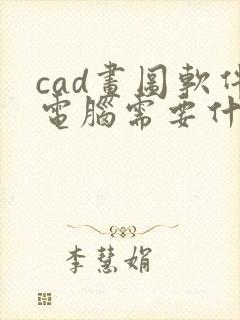 cad畫圖軟件
電腦需要什
李慧娟